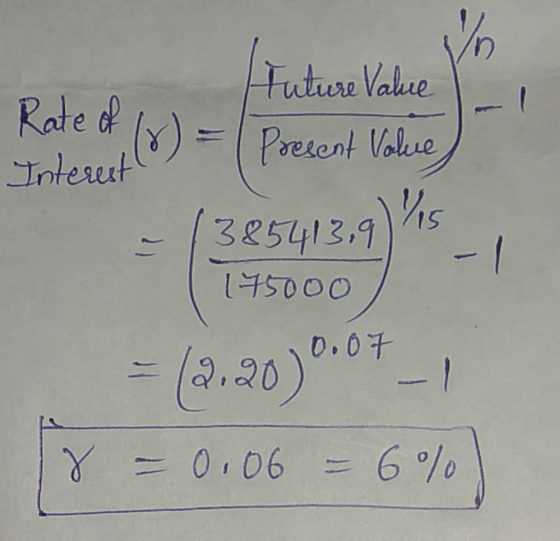 Rate of Interest (r) = (Future Value / Present Value)^1/n - 1
= (385413.9 / 175000)^1/15 - 1
= (2.20)^0.07 - 1
r = 0.06 = 6%